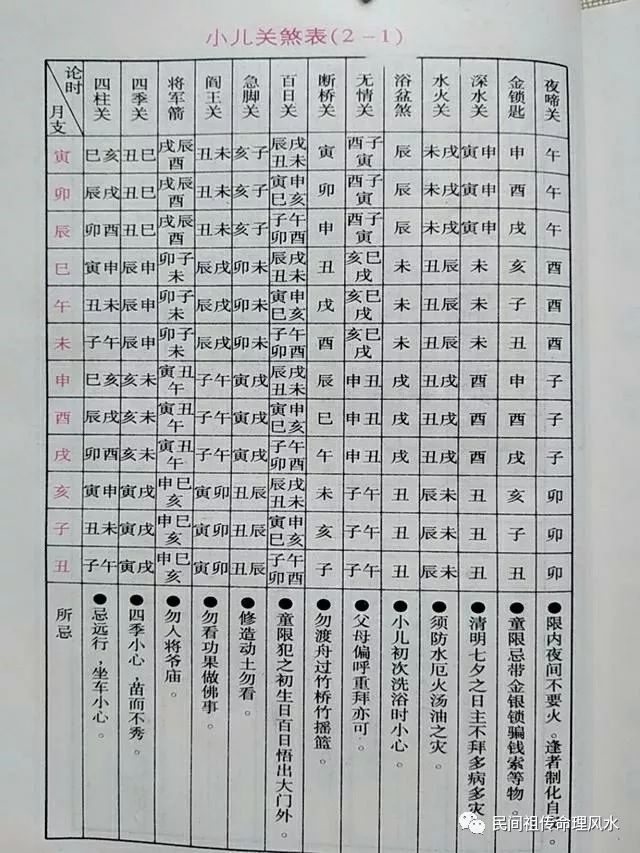 小儿关煞表(2-1)
论时 月支 四柱关 四季关 将军箭 阎王关 急脚关 百日关 断桥关 无情关 浴盆煞 水火关 深水关 金锁匙 夜啼关
寅 巳亥 丑巳 戌辰酉 丑未 亥子 辰戌丑未 寅 酉子寅 辰 未戌 寅申 申 午
卯 辰戌 丑巳 戌辰酉 丑未 亥子 寅申巳亥 卯 酉子寅 辰 未戌 寅申 酉 午
辰 卯酉 丑巳 戌辰酉 丑未 亥子 子午卯酉 申 酉子寅 辰 未戌 寅申 戌 午
巳 寅申 辰申 卯子未 辰戌 卯未 辰戌丑未 丑 亥巳戌 未 丑辰 未 亥 酉
午 丑未 辰申 卯子未 辰戌 卯未 寅申巳亥 戌 亥巳戌 未 丑辰 未 子 酉
未 子午 辰申 卯子未 辰戌 卯未 子午卯酉 酉 亥巳戌 未 丑辰 未 丑 酉
申 巳亥 亥未 寅丑午 子午 寅戌 辰戌丑未 辰 申丑 戌 丑戌 酉 申 子
酉 辰戌 亥未 寅丑午 子午 寅戌 寅申巳亥 巳 申丑 戌 丑戌 酉 酉 子
戌 卯酉 亥未 寅丑午 子午 寅戌 子午卯酉 午 申丑 戌 丑戌 酉 戌 子
亥 寅申 寅戌 申巳亥 寅卯 丑辰 辰戌丑未 未 子午 丑 辰未 丑 亥 卯
子 丑未 寅戌 申巳亥 寅卯 丑辰 寅申巳亥 亥 子午 丑 辰未 丑 子 卯
丑 子午 寅戌 申巳亥 寅卯 丑辰 子午卯酉 子 子午 丑 辰未 丑 丑 卯
所忌
●忌远行，坐车小心。
●四季小心，苗而不秀。
●勿入将爷庙。
●勿看功果做佛事。
●修造动土勿看。
●童限犯之初生日百日悟出大门外。
●勿渡舟过竹桥竹摇篮。
●父母偏呼重拜亦可。
●小儿初次洗浴时小心。
●须防水厄火汤油之灾。
●清明七夕之日主不拜多病多灾
●童限忌带金银锁骗钱索等物。
●限内夜间不要火。逢者制化自
民间祖传命理风水